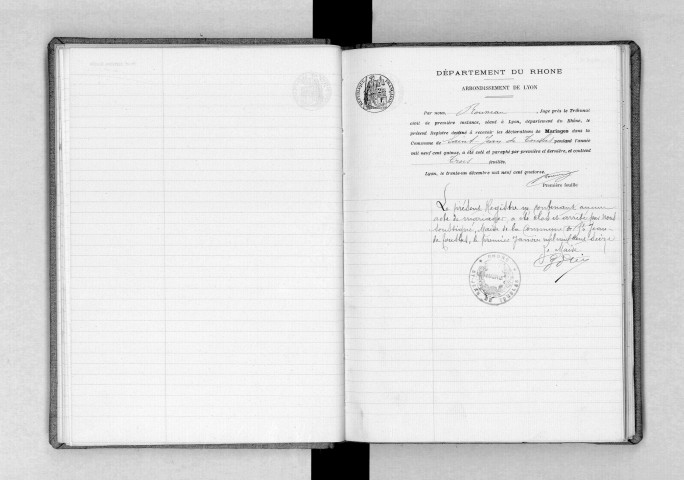 DÉPARTEMENT DU RHONE
ARRONDISSEMENT DE LYON
Par nous, Rousseau, Juge près le Tribunal
civil de première instance, séant à Lyon, département du Rhône, le
présent Registre destiné à recevoir les déclarations de Mariages dans la
Commune de Saint Jean de Touslas pendant l'année
mil neuf cent quinze, a été coté et paraphé par première et dernière, et contient
trois feuillets.
Lyon, le trente-un décembre mil neuf cent quatorze.
Première feuille
Le présent Registre ne contenant aucun
acte de mariage, a été clos et arrêté par nous
soussigné, Maire de la Commune de St Jean
de Touslas, le premier Janvier mil neuf cent seize
Le Maire